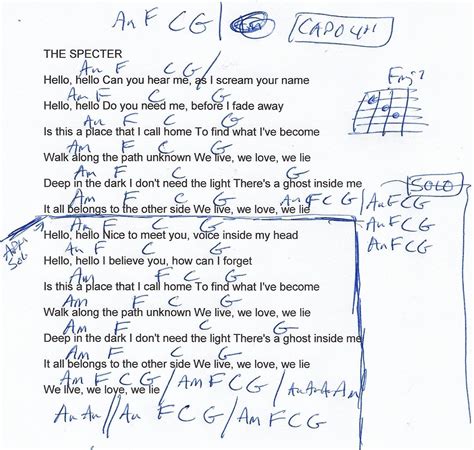 Am F C G | CAPO 4th
THE SPECTER
Am F C G /
Hello, hello Can you hear me, as I scream your name
Am F C G
Hello, hello Do you need me, before I fade away
Am F C G
Is this a place that I call home To find what I've become
Am F C G
Walk along the path unknown We live, we love, we lie
Am F C G
Deep in the dark I don't need the light There's a ghost inside me
SOLO
Am F C G Am F C G / Am F C G
It all belongs to the other side We live, we love, we lie
Am F C G
Am F C G
Hello, hello Nice to meet you, voice inside my head
Am F C G
Am F C G
Hello, hello I believe you, how can I forget
Am F C G
Is this a place that I call home To find what I've become
Am F C G
Walk along the path unknown We live, we love, we lie
Am F C G
Deep in the dark I don't need the light There's a ghost inside me
Am F C G
It all belongs to the other side We live, we love, we lie
Am F C G / Am F C G / Am Am Am Am
We live, we love, we lie
Am Am // Am F C G / Am F C G